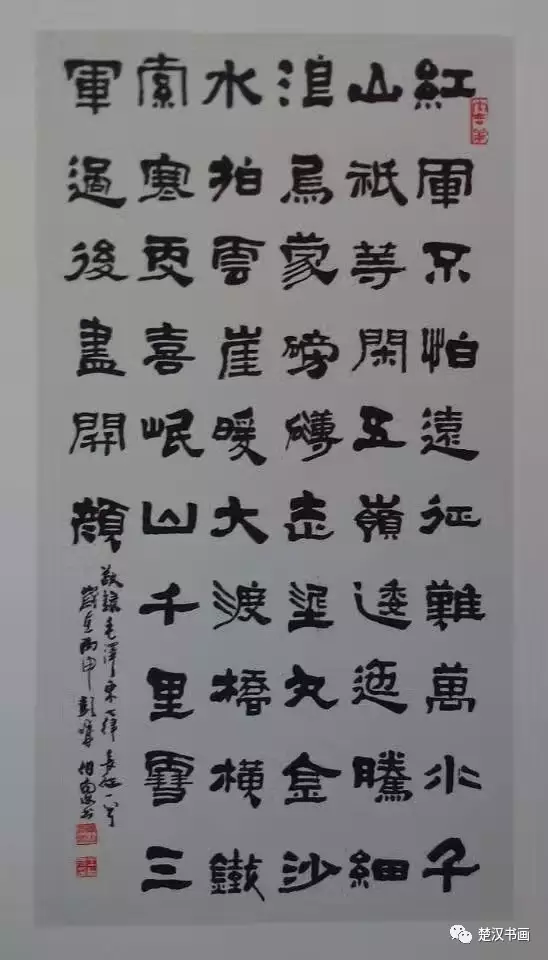 紅軍不怕遠征難萬水千
山祇等閑五嶺逶迤騰細
浪烏蒙磅礴走埿丸金沙
水拍雲崖暖大渡橋橫鐵
索寒更喜岷山千里雪三
軍過後盡開顏
敬錄毛澤東七律長征一首
歲在丙申
楚汉书画